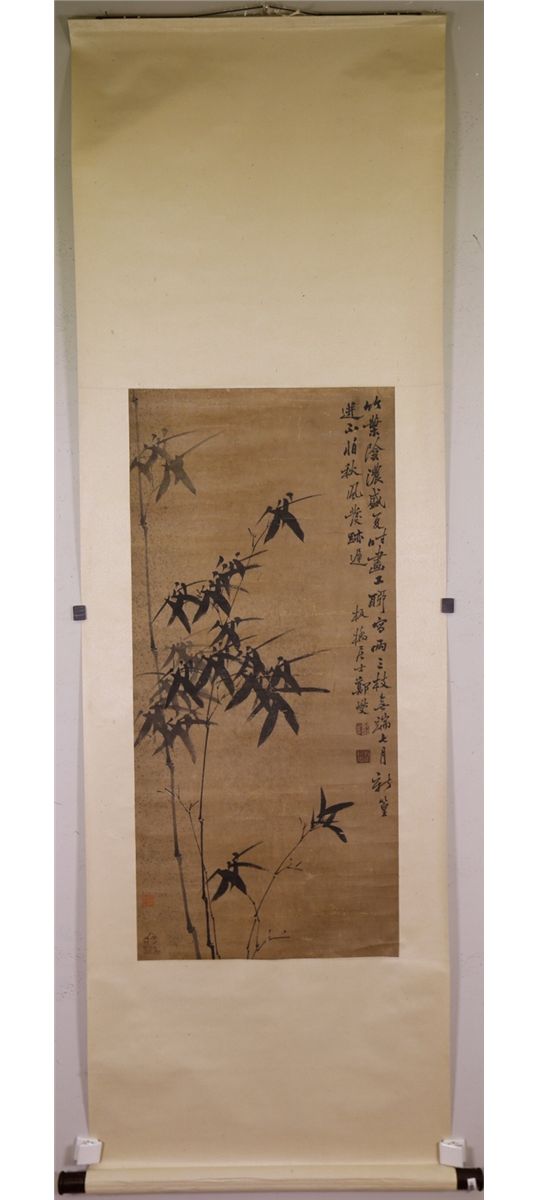 竹葉陰濃盛夏時畫工聊寫兩三枝無端七月新篁
進不怕秋風發跡遲
板橋居士鄭燮